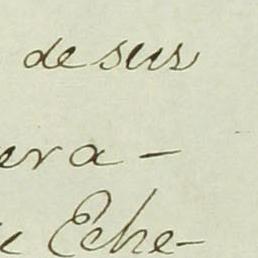 de sus
era-
Eche-